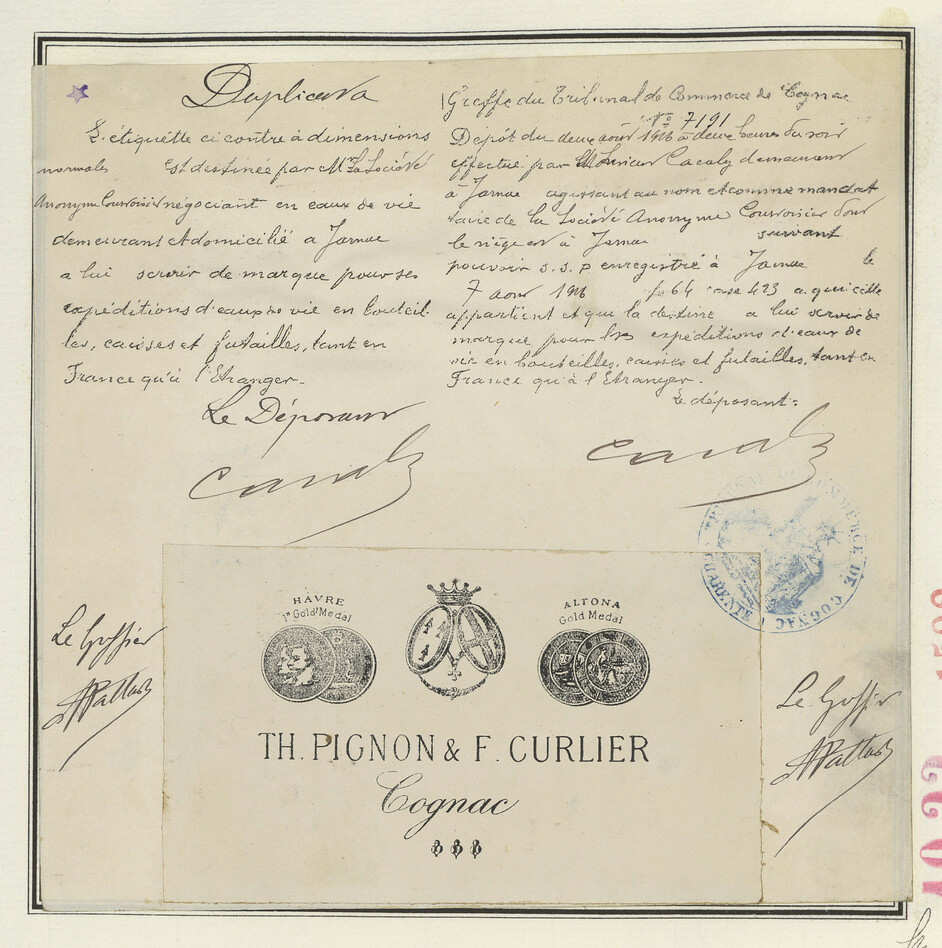 Duplicata
L'étiquette ci contre à dimensions
normales est destinée par Mr La Société
Anonyme Courvoisier négociant en eaux de vie
demeurant et domicilié a Jarnac
a lui servir de marque pour ses
expéditions d'eaux de vie en bouteil
les, caisses et futailles, tant en
France qu'à l'Etranger.
Le Déposant
Greffe du Tribunal de Commerce de Cognac
No 7191
Dépôt du deux août 1926 à deux heures du soir
effectué par Monsieur demeurant
à Jarnac agissant au nom et comme mandat
taire de la Société Anonyme Courvoisier dont
le siège est à Jarnac suivant
pouvoir s.s.p enregistré à Jarnac le
7 août 1926 fo 64 case 423 a qui elle
appartient et qui la destine a lui servir de
marque pour les expéditions d'eaux de
vie en bouteilles, caisses et futailles, tant en
France qu'à l'Etranger.
Le déposant:
TRIBUNAL DE COMMERCE DE COGNAC
CHARENTE
Le Greffier
HAVRE
1st Gold Medal
ALTONA
Gold Medal
TH. PIGNON & F. CURLIER
Cognac
Le Greffier